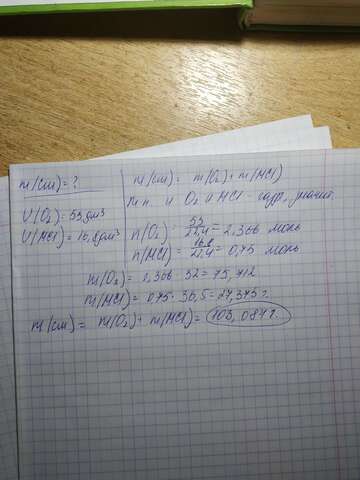 m(см)=?
V(O₂)= 53 дм³
V(HCl)= 16,8 дм³
m(см)= m(O₂)+m(HCl)
т.к. и O₂ и HCl -
n(O₂)= 53/22,4 = 2,366 моль
n(HCl)= 16,8/22,4 = 0,75 моль
m(O₂)= 2,366·32=75,712
m(HCl)= 0,75·36,5=27,375 г.
m(см)= m(O₂)+m(HCl)= 103,087 г.